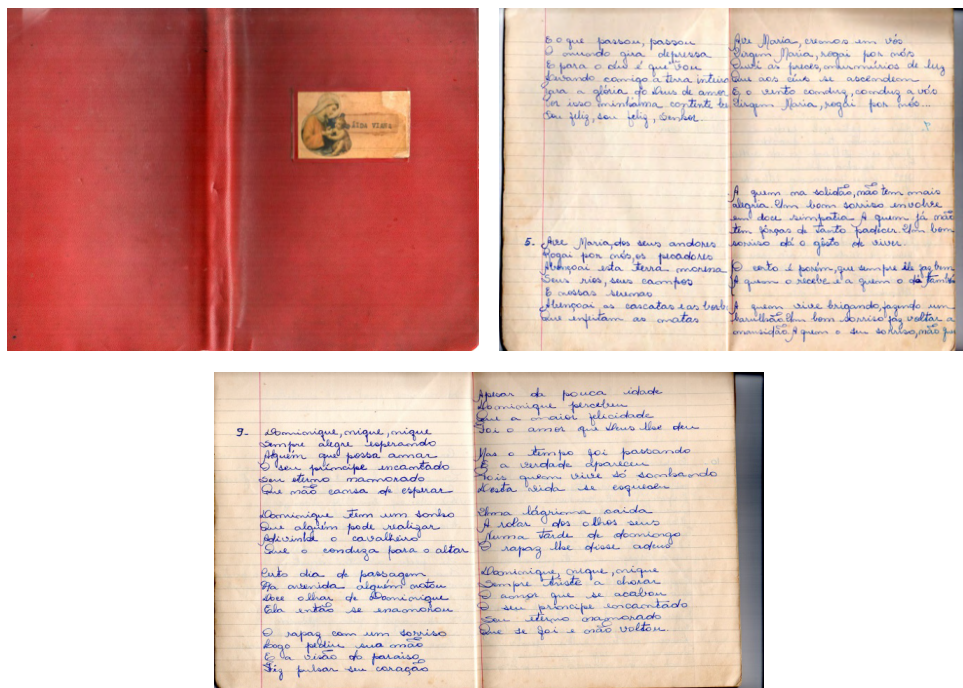 VIANA
E o que passou, passou
O mundo gira depressa
E para o céu é que vou
Levando comigo a terra inteira
Para a glória do Deus de amor
Por isso minh'alma contente
Sou feliz, sou feliz, Senhor.
5. Ave Maria, dos seus andores
Rogai por nós, os pecadores
Abençoai esta terra morena
Seus rios, seus campos
E nossas serenas
Abençoai as cascatas e as
Que enfeitam as matas
Ave Maria, cremos em vós
Virgem Maria, rogai por nós
Ouvi as preces, murmúrios de luz
Que aos céus se ascendem
E o vento conduz, conduz a vós
Virgem Maria, rogai por nós...
A quem na solidão, não tem mais
alegria. Um bom sorriso envolve
em doce simpatia A quem já não
tem fôrças de tanto padecer. Um bom
sorriso dá o gôsto de viver.
O certo é porém, que sempre êle faz bem
A quem o recebe e a quem o dá também
A quem vive brigando, fazendo um
barulhão. Um bom sorriso faz voltar a
mansidão, A quem o seu sorriso, não
9- Dominique, nique, nique
Sempre alegre esperando
Alguém que possa amar
O seu príncipe encantado
Seu eterno namorado
Que não cansa de esperar
Dominique tem um sonho
Que alguém pode realizar
Adivinhe o cavalheiro
Que o conduza para o altar
Certo dia de passagem
Na avenida alguém notou
Doce olhar de Dominique
Ela então se enamorou
O rapaz com um sorriso
Logo pediu sua mão
E a visão do paraíso
Fez pulsar seu coração
Apesar de pouca idade
Dominique percebeu
Que a maior felicidade
Foi o amor que Deus lhe deu
Mas o tempo foi passando
E a verdade apareceu
Pois quem vive só sonhando
Desta vida se esqueceu
Uma lágrima caida
A rolar dos olhos seus
Numa tarde de domingo
O rapaz lhe disse adeus
Dominique, nique, nique
Sempre triste a chorar
O amor que se acabou
O seu príncipe encantado
Seu eterno namorado
Que se foi e não voltou.